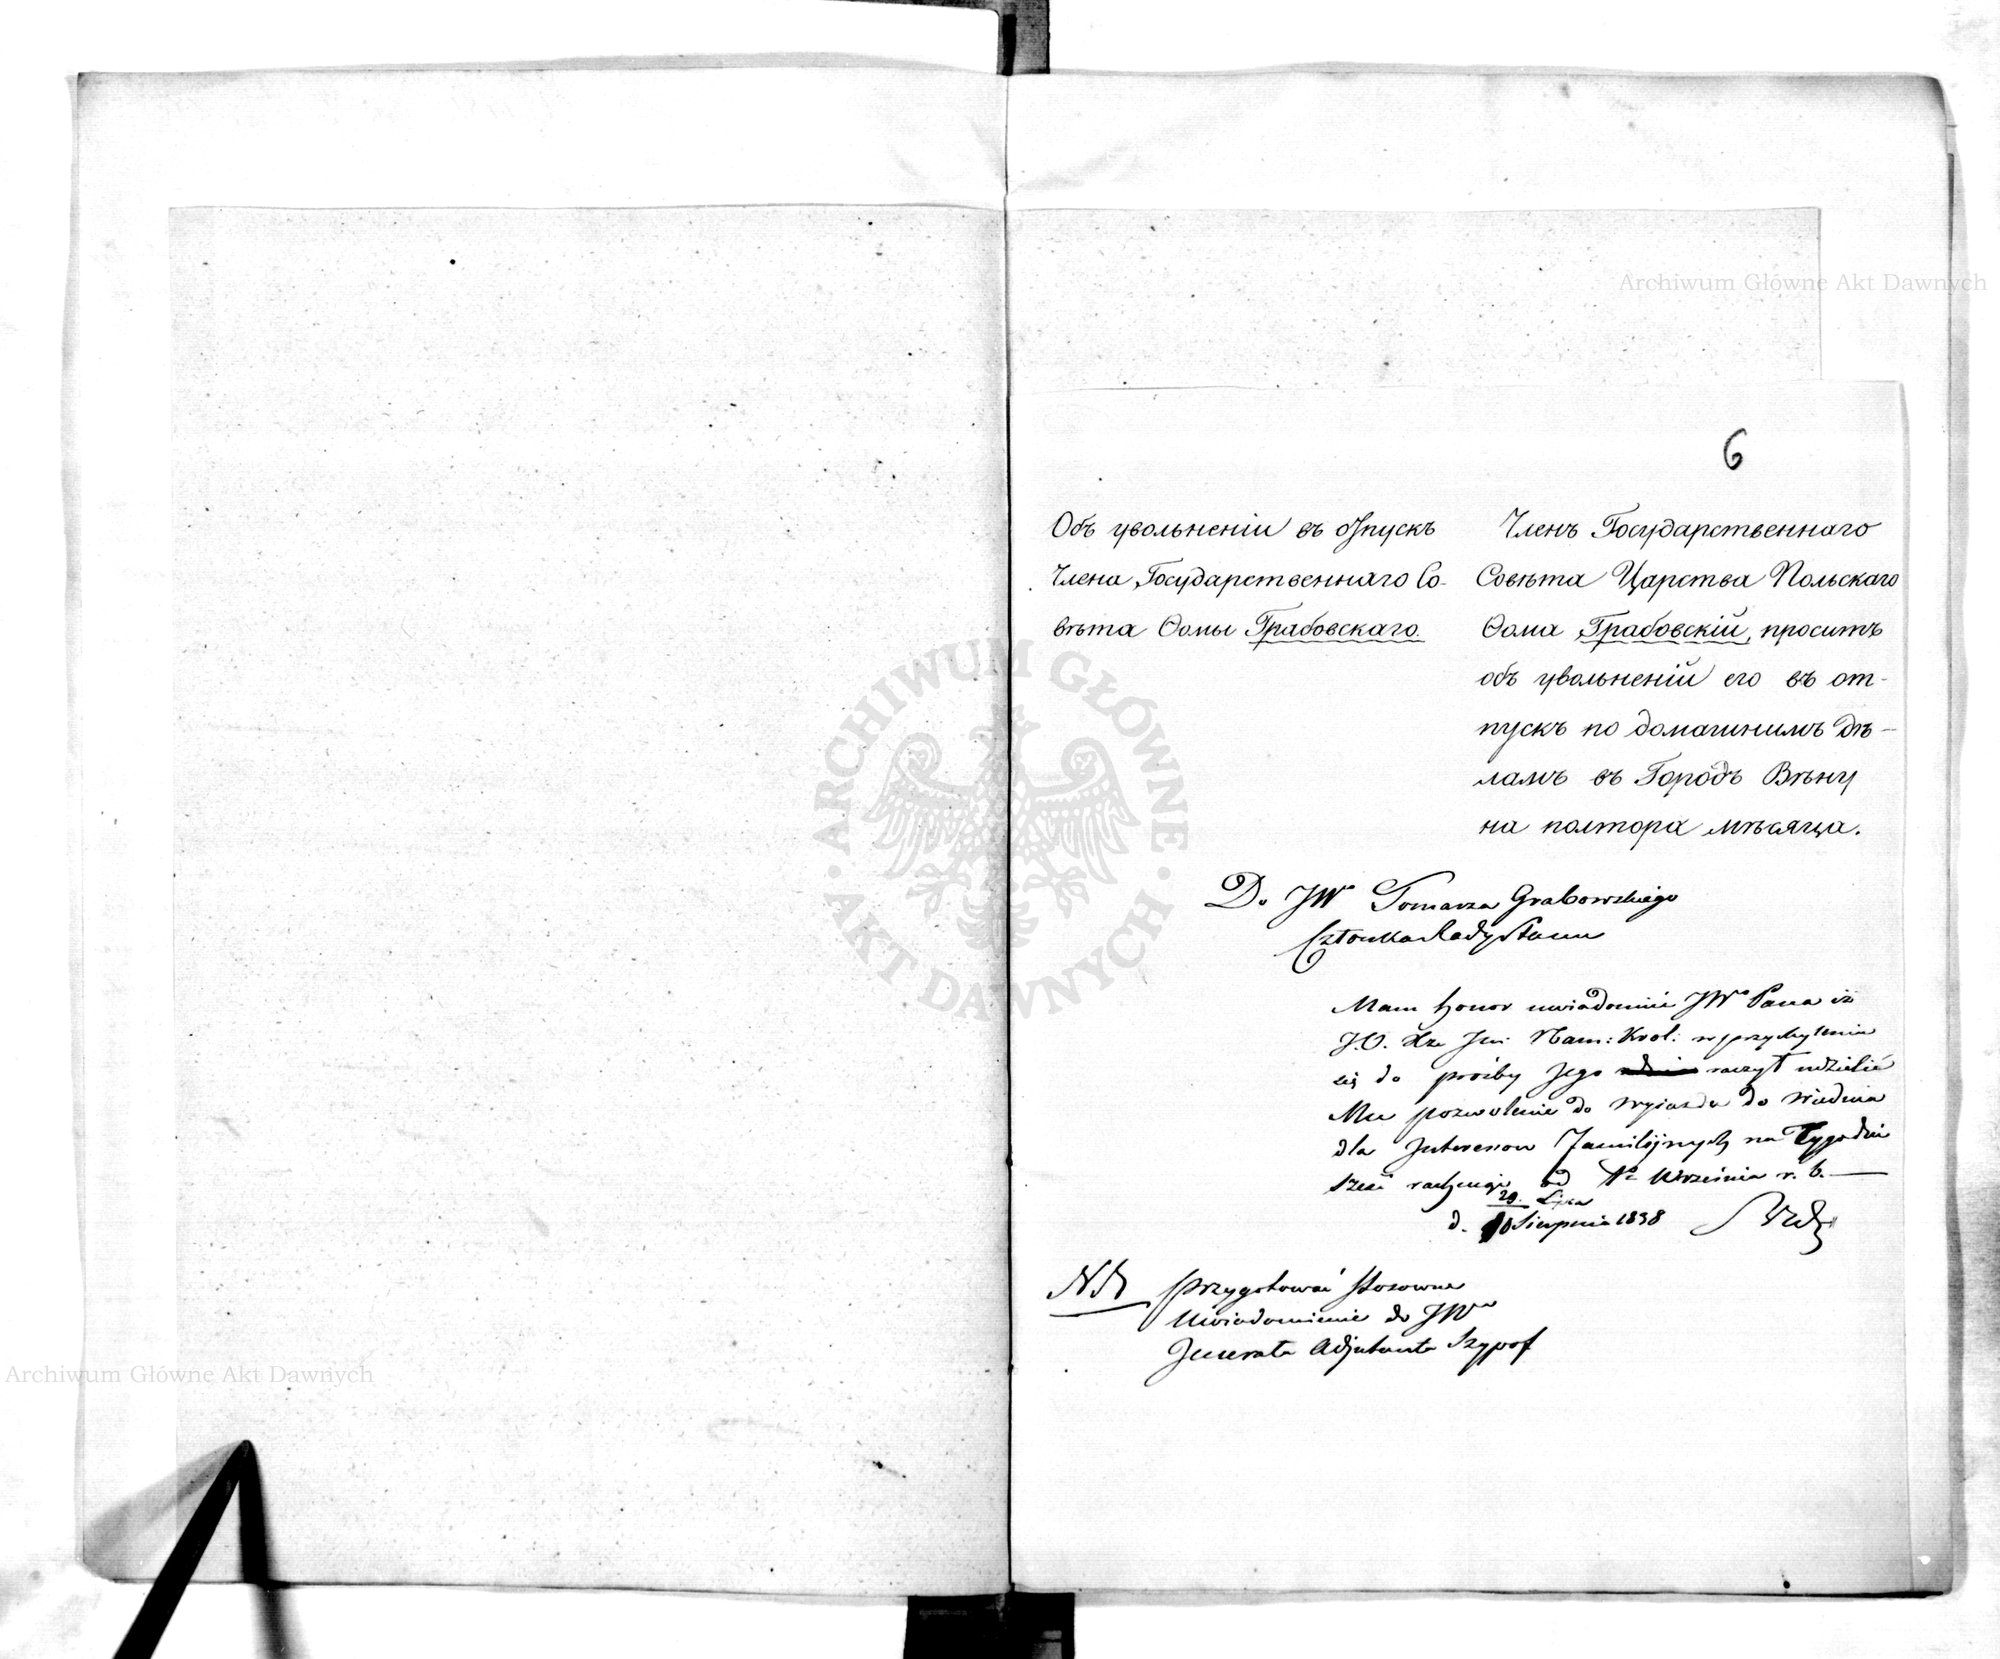 6
Объ увольненіи въ отпускъ
Члена Государственнаго Со-
вѣта Ѳомы Грабовскаго.
Членъ Государственнаго
Совѣта Царства Польскаго
Ѳома Грабовскій, проситъ
объ увольненіи его въ от-
пускъ по домашнимъ дѣ-
ламъ въ Городъ Вѣну
на полтора мѣсяца.
Do JWo Tomasza Grabowskiego
Członka Rady Stanu
Mam honor uwiadomić JWo Pana iż
J.O. Xże Jm: Nam: Krol: w przychyleniu
się do prośby Jego raczył udzielić
Mu pozwolenie do wyjazdu do Wiednia
dla Interesow Familijnych na Tygodni
sześć rachując od 1o Września r. b.
29. Lipca
d. 10 Sierpnia 1838
NB przygotować stosowne
Uwiadomienie do JWo
Jenerała Adjutanta Szypof
Archiwum Główne Akt Dawnych
Archiwum Główne Akt Dawnych
ARCHIWUM GŁÓWNE AKT DAWNYCH